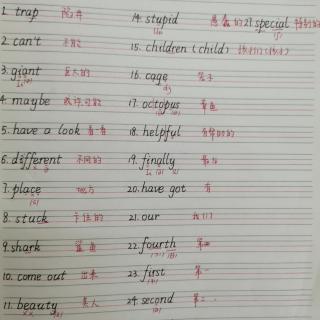 1. trap 陷井
2. can't 不能
3. giant 巨大的
4. maybe 或许可能
5. have a look 看看
6. different 不同的
7. place 地方
8. stuck 卡住的
9. shark 鲨鱼
10. come out 出来
11. beauty 美人
14. stupid 愚蠢的
15. children (child) 孩子们(孩子)
16. cage 笼子
17. octopus 章鱼
18. helpful 有帮助的
19. finally 最后
20. have got 有
21. our 我们
22. fourth 第四
23. first 第一
24. second 第二
21. special 特别的